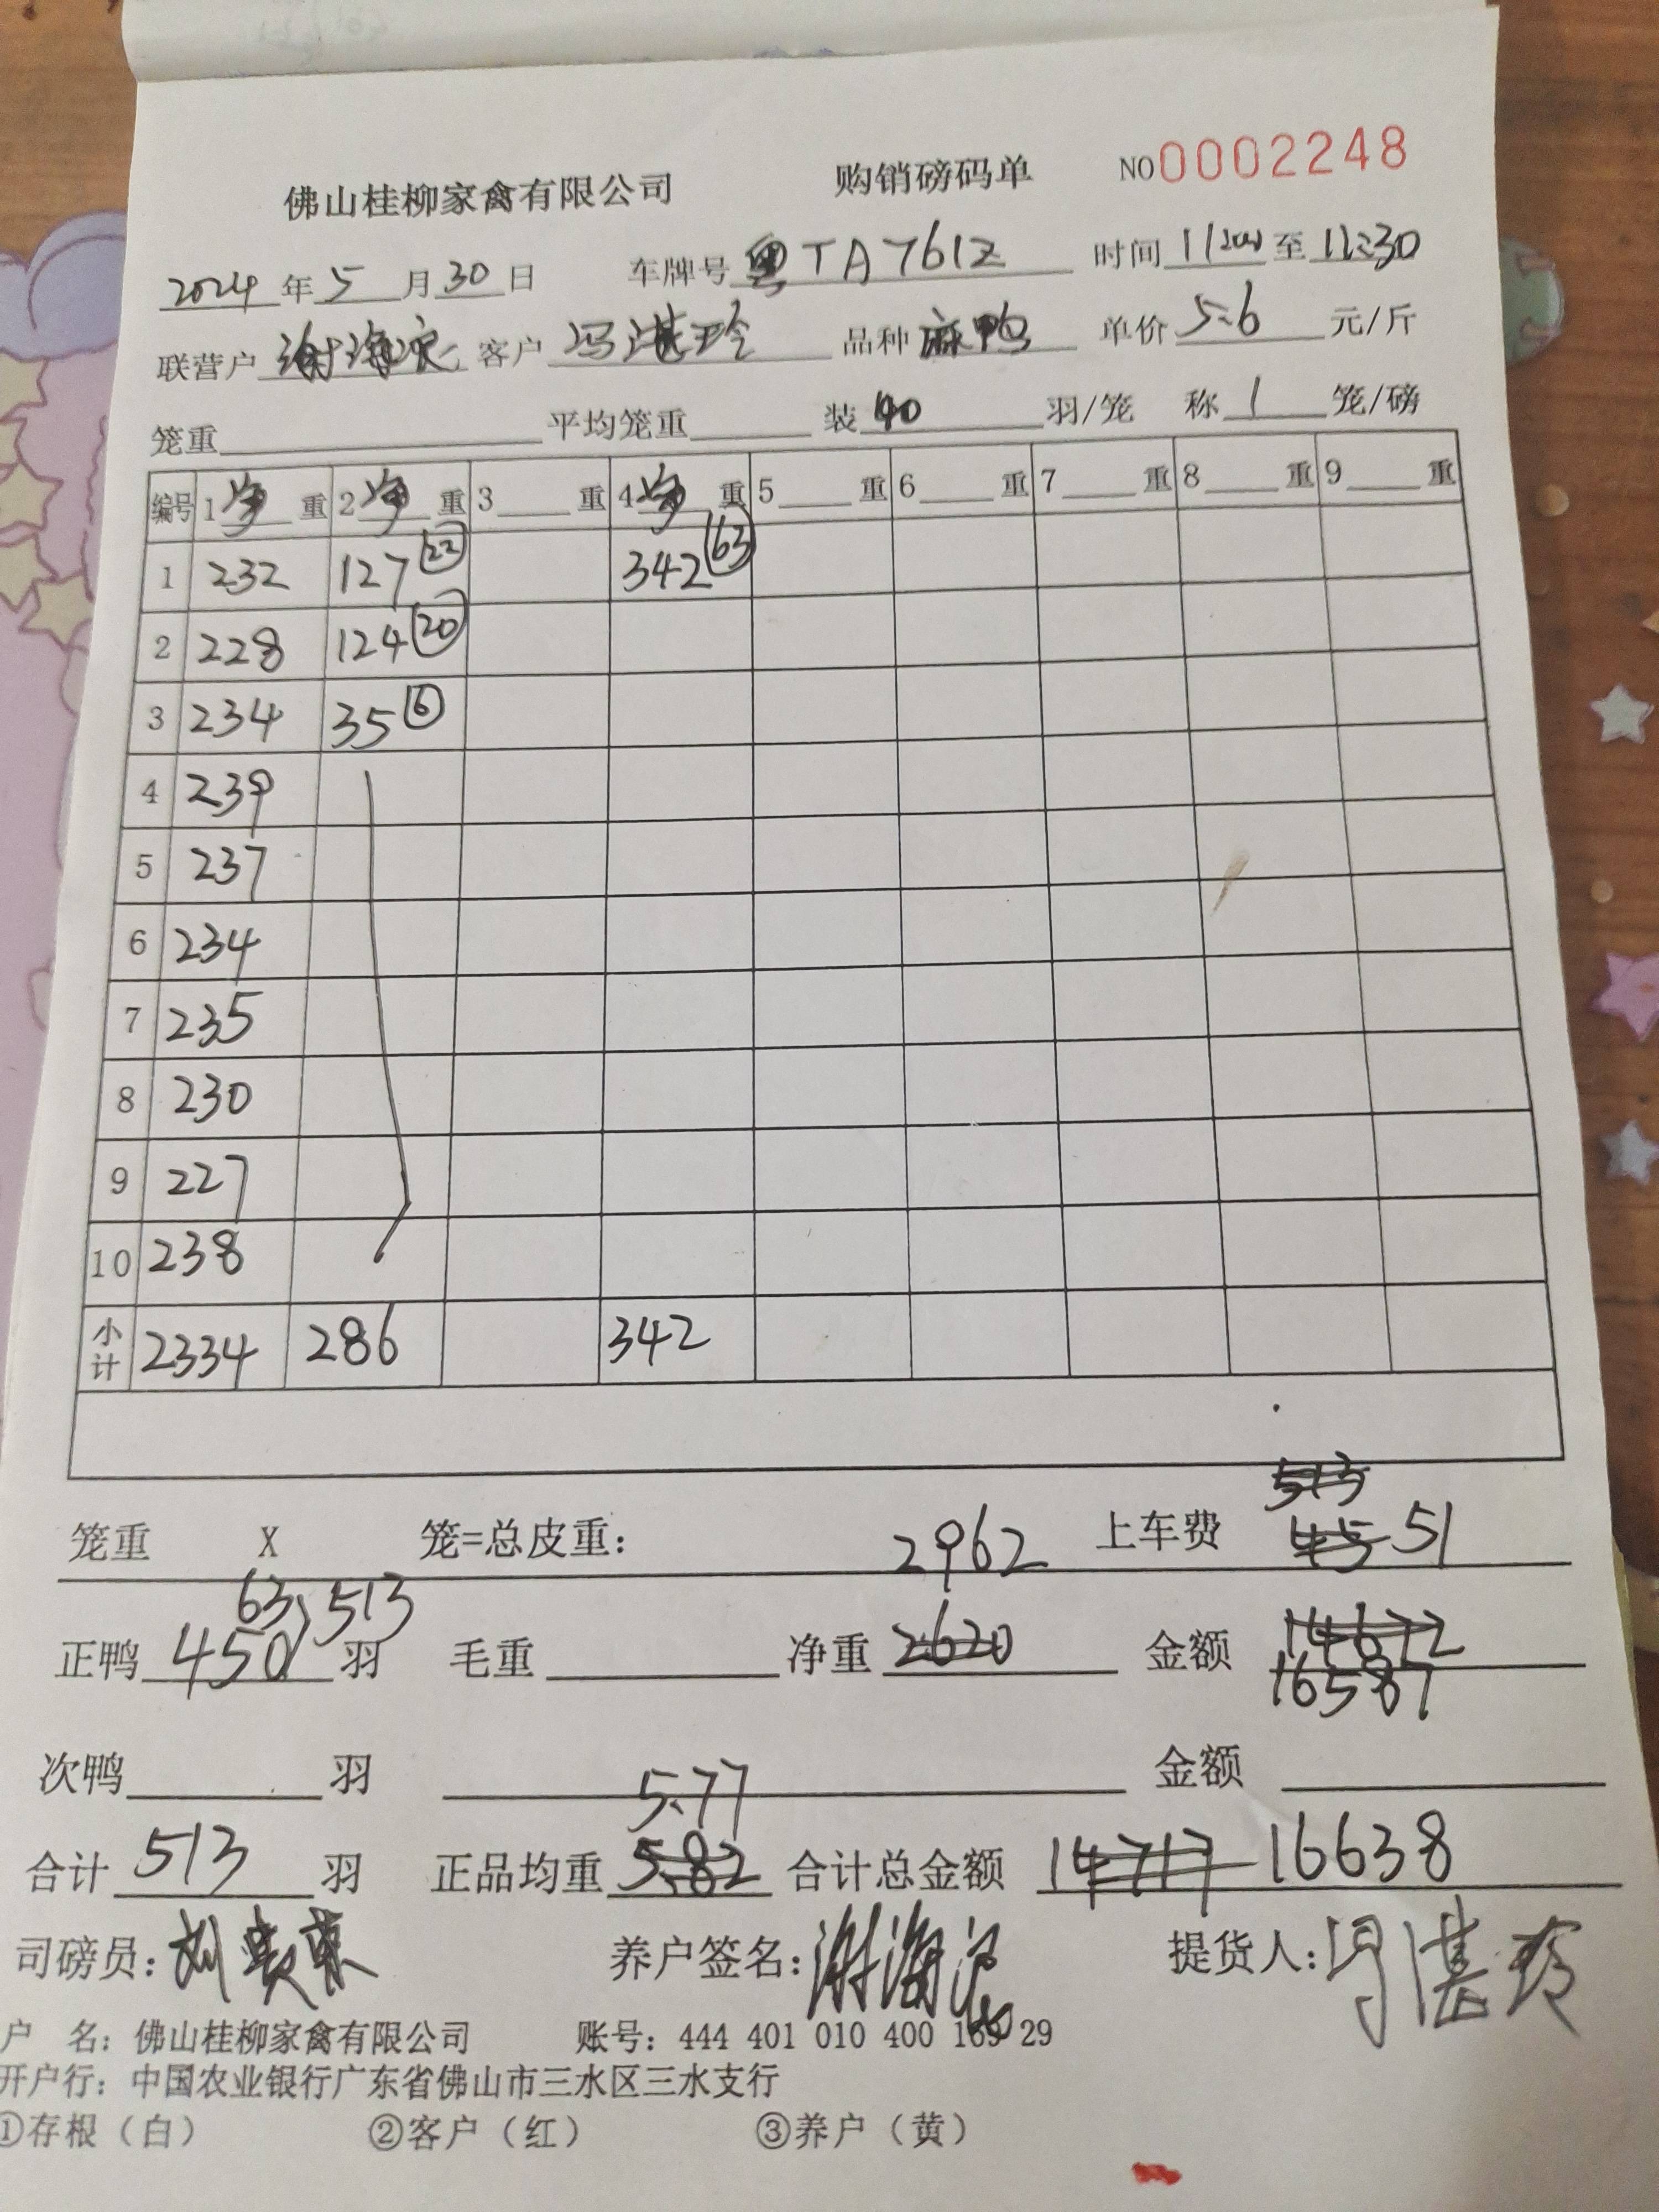 佛山桂柳家禽有限公司 购销磅码单 NO 0002248
2024 年 5 月 30 日 车牌号 粤TA761Z 时间 至 11:30
联营户 谢海 客户 冯湛玲 品种 麻鸭 单价 5.6 元/斤
笼重 平均笼重 装 40 羽/笼 称 1 笼/磅
编号 1 净 重 2 净 重 3 重 4 净 重 5 重 6 重 7 重 8 重 9 重
1 232 127 (22) 342 (63)
2 228 124 (20)
3 234 35 (6)
4 239
5 237
6 234
7 235
8 230
9 227
10 238
小计 2334 286 342
513
笼重 X 笼=总皮重: 2962 上车费 45 51
63 513
正鸭 450 羽 毛重 净重 2620 金额 14672
16587
次鸭 羽 金额
5.77
合计 513 羽 正品均重 5.82 合计总金额 14717 16638
司磅员: 刘 养户签名: 谢海 提货人: 冯湛玲
户 名: 佛山桂柳家禽有限公司 账号: 444 401 010 400 169 29
开户行: 中国农业银行广东省佛山市三水区三水支行
①存根（白） ②客户（红） ③养户（黄）